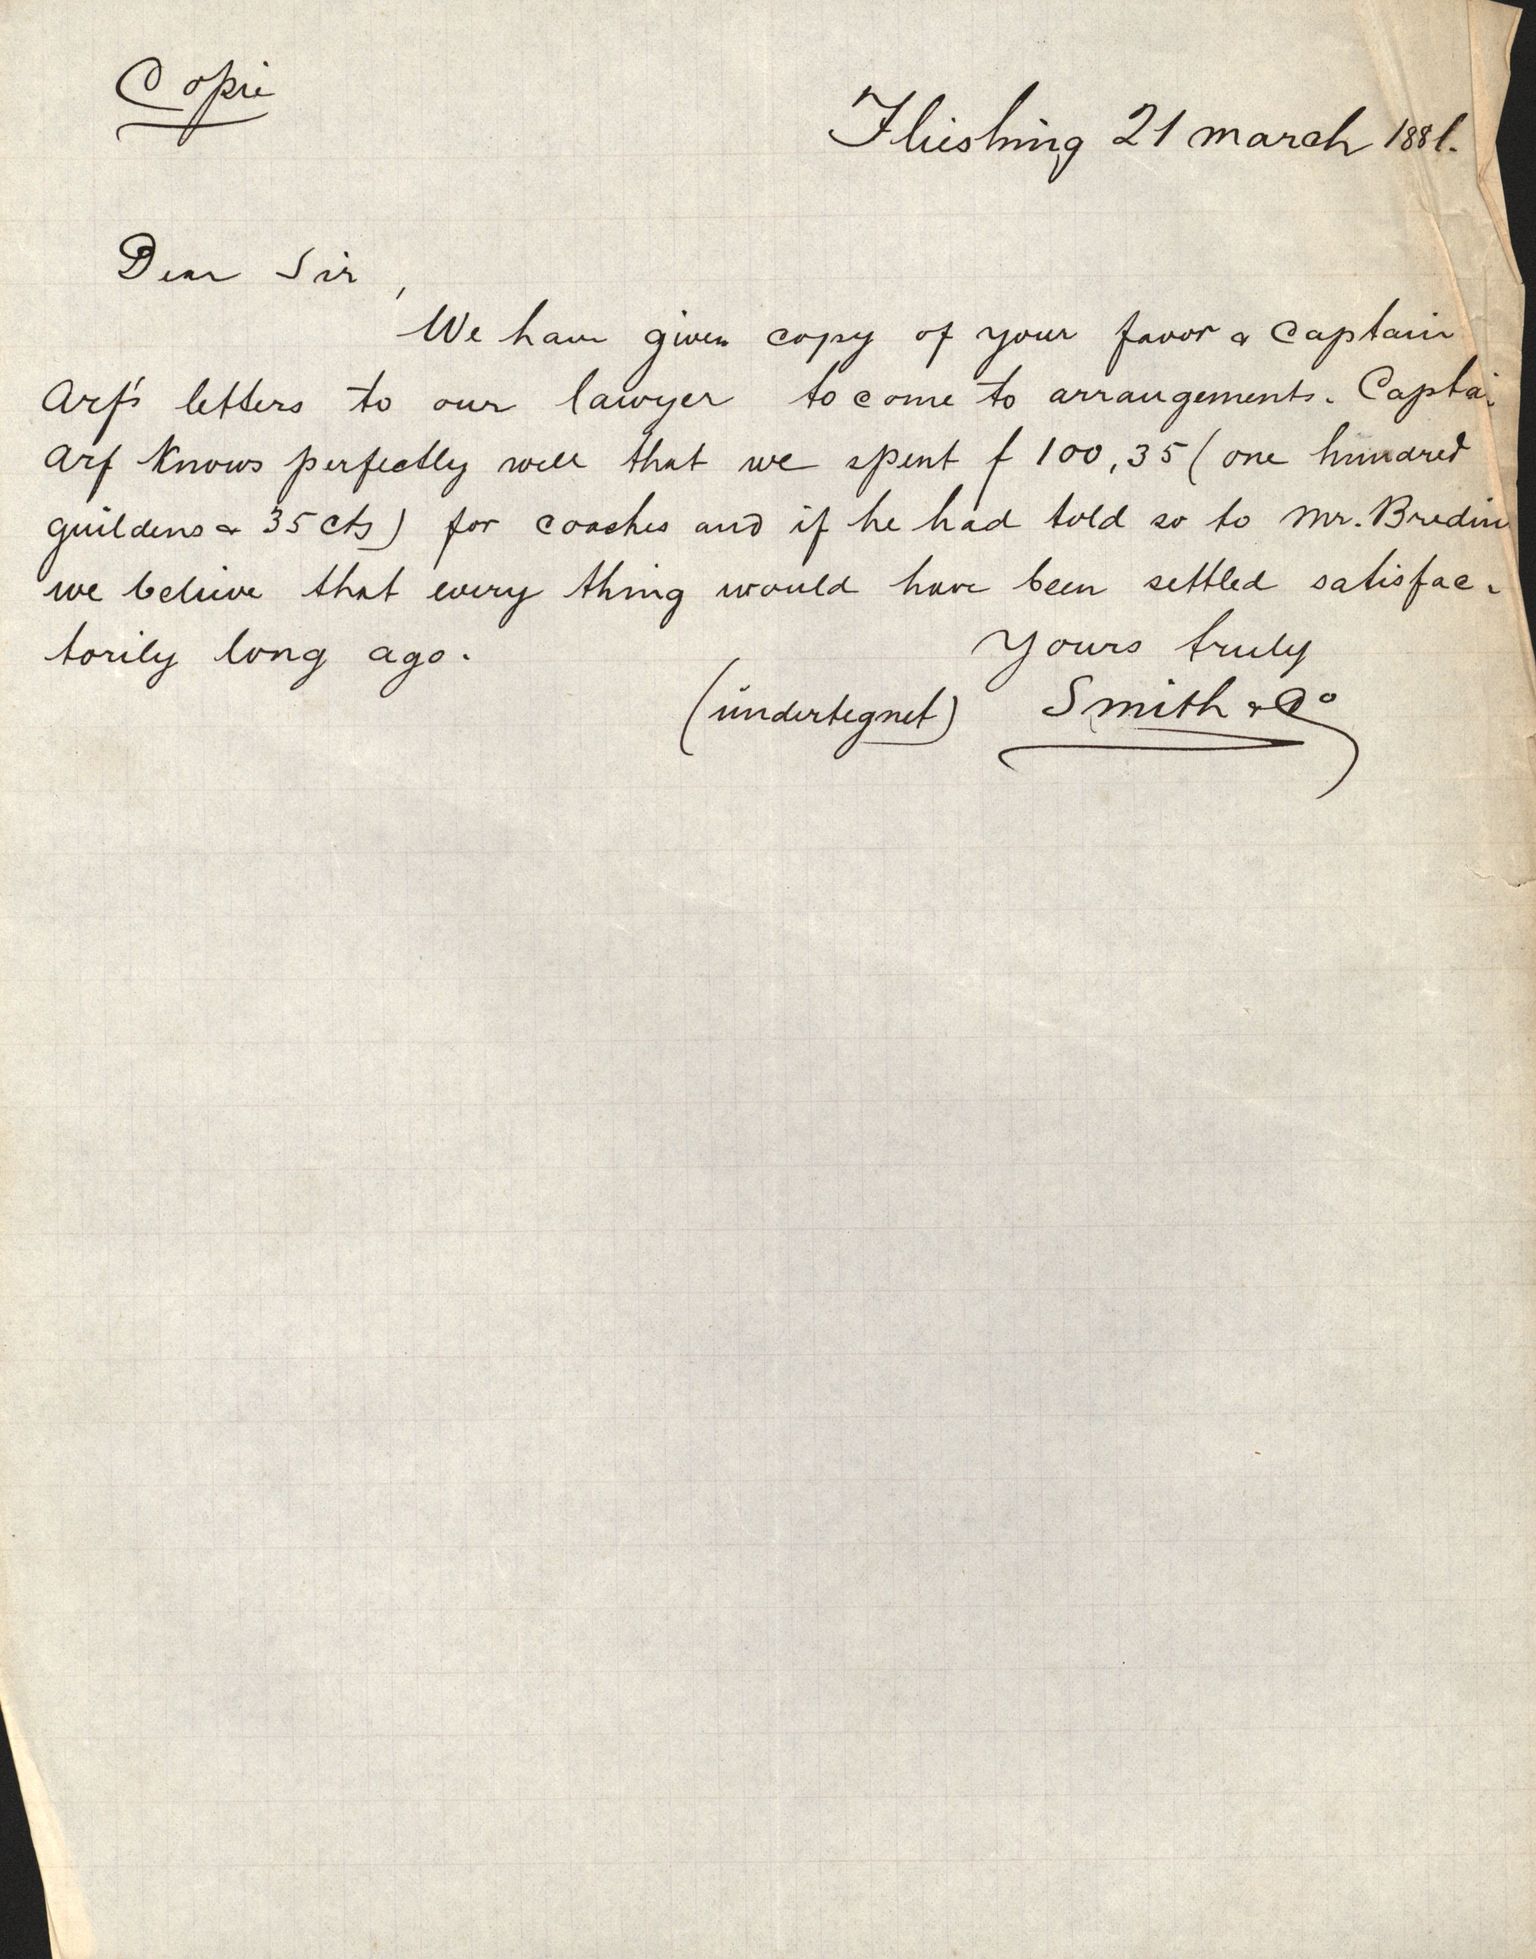 Copie
Flieshing 21 march 1881.
Dear Sir,
We have given copy of your favor & Captain
Arf's letters to our lawyer to come to arrangements. Captai-
Arf knows perfectly well that we spent f 100,35 (one hundred
guildens & 35 cts) for coaches and if he had told so to Mr. Bredin
we believe that every thing would have been settled satisfac-
torily long ago.
Yours truly
(undertegnet) Smith & Co